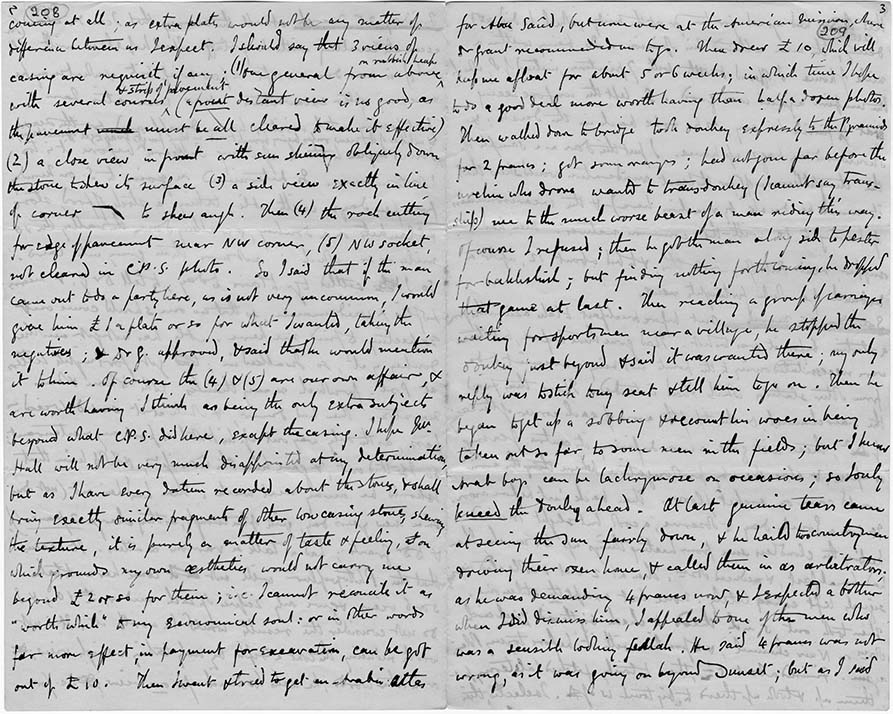 208
coming at all: as extra plates would not be any matter of
difference between us I expect. I should say that 3 views of
casing are requisite, if any; (1) one general from above on rubbish heap
with several courses & strip of pavement (a front distant view is no good, as
the pavement must be all cleared to make it effective)
(2) a close view in front with sun shining obliquely down
the stone to shew its surface (3) a side view exactly in line
of corner to shew angle. Then (4) the rock cutting
for edge of pavement near NW corner, (5) NW socket,
not cleared in C.P.S. photo. So I said that if the man
came out to do a party here, as is not very uncommon, I would
give him £1 a plate or so for what I wanted, taking the
negatives; & Dr G. approved, & said that he would mention
it to him. Of course the (4) & (5) are our own affair, &
are worth having I think as being the only extra subjects
beyond what C.P.S. did here, except the casing. I hope Mr
Hall will not be very much disappointed at my determination,
but as I have every datum recorded about the stones, & shall
bring exactly similar fragments of other low casing stones, shewing
the texture, it is purely a matter of taste & feeling, & on
which grounds my own æsthetics would not carry me
beyond £2 or so for them; i.e. I cannot reconcile it as
"worth while" to my economical soul: or in other words
far more effect, in payment for excavation, can be got
out of £10. Then I went & tried to get an Arabic atlas
3
for Abu Saîd, but none were at the American Mission, where
Dr Grant recommended me to go. Then drew £10, which will
209
keep me afloat for about 5 or 6 weeks; in which time I hope
to do a good deal more worth having than half a dozen photos.
Then walked down to bridge took donkey expressly to the Pyramids
for 2 francs; got some oranges; had not gone far before the
urchin who drove wanted to transdonkey (I cannot say trans-
ship) me to the much worse beast of a man riding this way.
Of course I refused; then he got the man along side to pester
for bakhshish; but finding nothing forthcoming, he dropped
that game at last. Then reaching a group of carriages
waiting for sportsmen near a village, he stopped the
donkey just beyond & said it was wanted there; my only
reply was to stick to my seat & tell him to go on. Then he
began to get up a sobbing & recount his woes in being
taken out so far, to some men in the fields; but I knew
Arab boys can be lachrymose on occasions; so I only
kneed the donkey ahead. At last genuine tears came
at seeing the sun fairly down, & he haild two countrymen
driving their oxen home, & called them in as arbitrators.
as he was demanding 4 francs now, & I expected a bother
when I did dismiss him, I appealed to one of the men who
was a sensible looking fellah. He said 4 francs was not
wrong, as it was going on beyond Sunset; but as I said